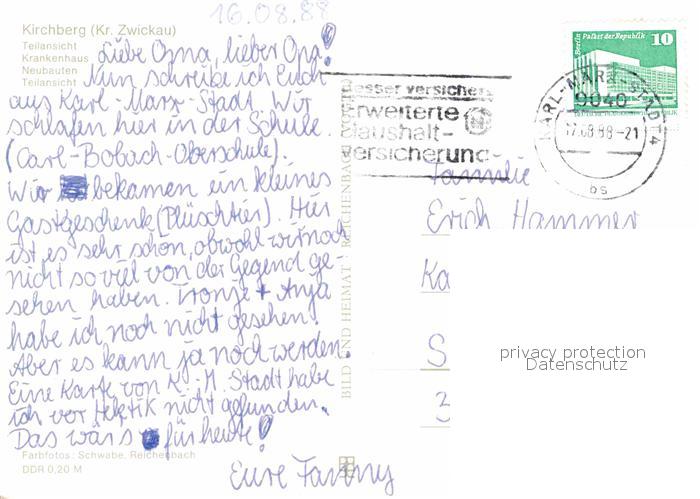 16.08.88
Kirchberg (Kr. Zwickau)
Teilansicht
Krankenhaus
Neubauten
Teilansicht
Liebe Oma, lieber Opa!
Nun schreibe ich Euch
aus Karl-Marx-Stadt. Wir
schlafen hier in der Schule.
(Carl-Bobach-Oberschule).
Wir bekamen ein kleines
Gastgeschenk (Plüschtier). Hier
ist es sehr schön, obwohl wir noch
nicht so viel von der Gegend ge-
sehen haben. Tronje + Anja
habe ich noch nicht gesehen!
Aber es kann ja noch werden.
Eine Karte von K.-M. Stadt habe
ich vor Hektik nicht gefunden.
Das wär's für heute!
Eure Fanny
Farbfotos: Schwabe, Reichenbach
DDR 0,20 M
BILD UND HEIMAT REICHENBACH
besser versichert
Erweiterte
Haushalt-
versicherung
Berlin Palast der Republik 10
KARL-MARX-STADT 4
9040
17.08.88-21
bs
Familie
Erich Hammer
Ka
S
3
privacy protection
Datenschutz